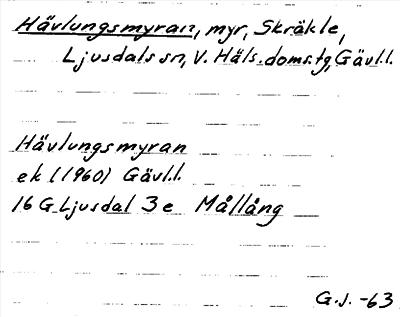 Hävlungsmyran, myr, Skräkle,
Ljusdals sn, V. Häls. doms.tg, Gävl.l.
Hävlungsmyran
ek (1960) Gävl.l.
16 G Ljusdal 3 e Mållång
G.J. -63